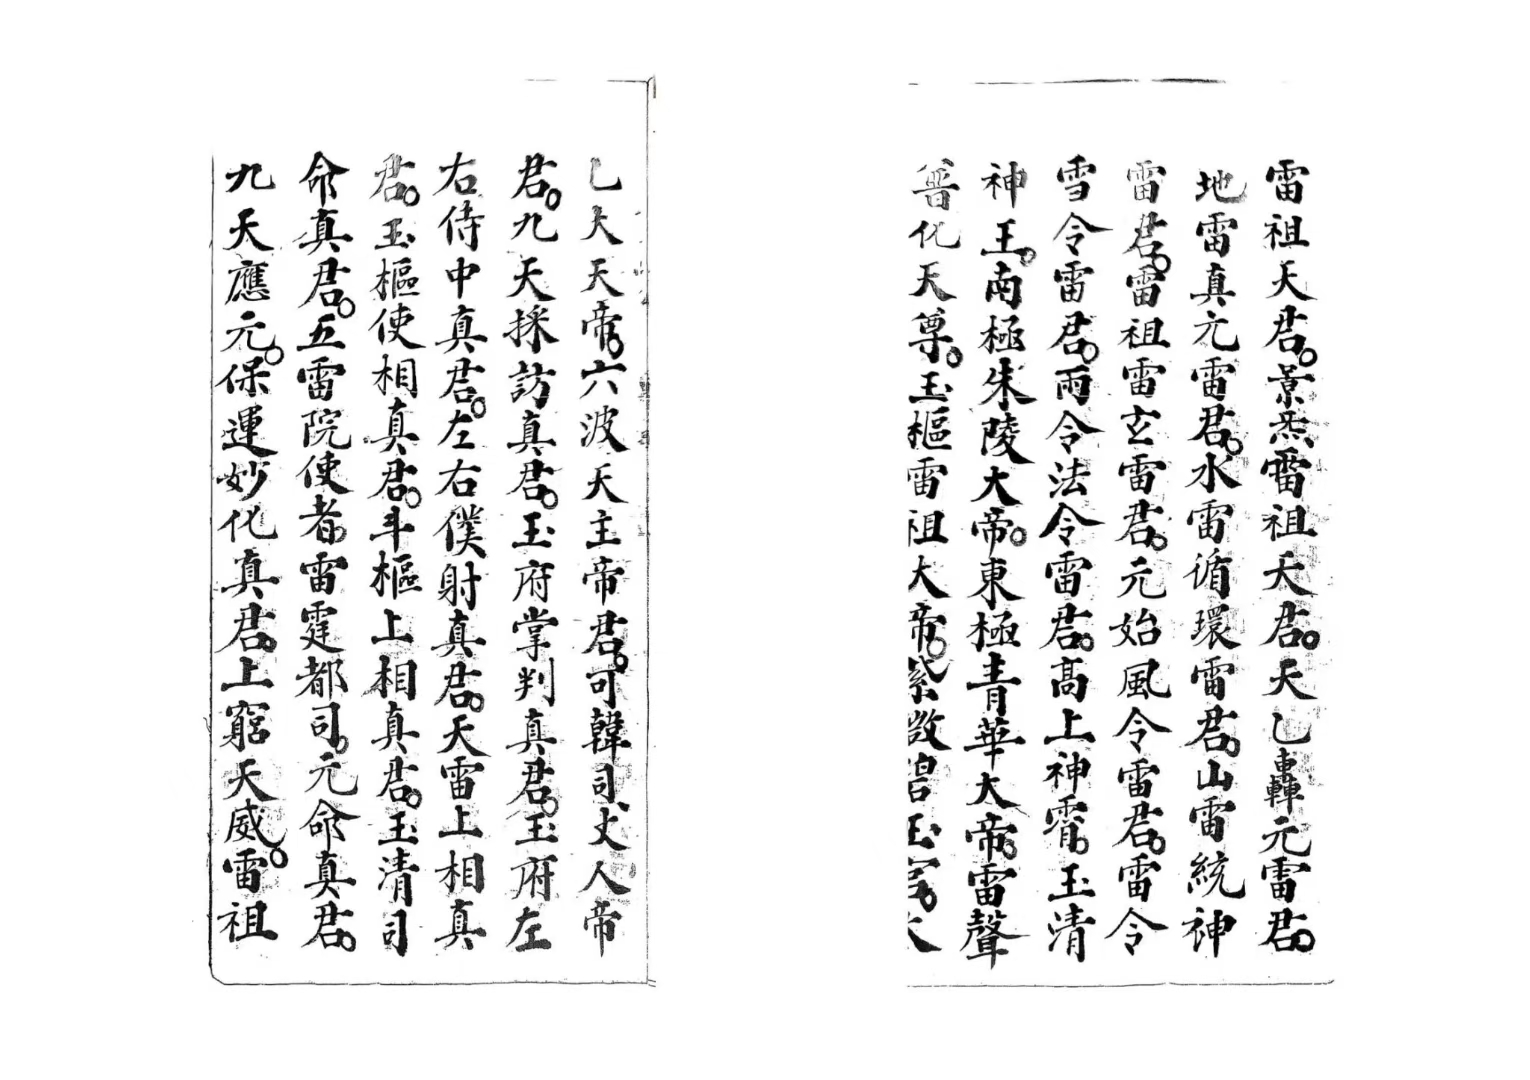 雷祖天君。景炁雷祖天君。天乙轟元雷君。
地雷真元雷君。水雷循環雷君。山雷統神
雷君。雷祖雷玄雷君。元始風令雷君。雷令
雪令雷君。雨令法令雷君。高上神霄。玉清
神王。南極朱陵大帝。東極青華大帝。雷聲
普化天尊。玉樞雷祖大帝。紫微碧玉宮。太
乙大天帝。六波天主帝君。可韓司丈人帝
君。九天採訪真君。玉府掌判真君。玉府左
右侍中真君。左右僕射真君。天雷上相真
君。玉樞使相真君。斗樞上相真君。玉清司
命真君。五雷院使者。雷霆都司。元命真君。
九天應元。保運妙化真君。上窮天威。雷祖